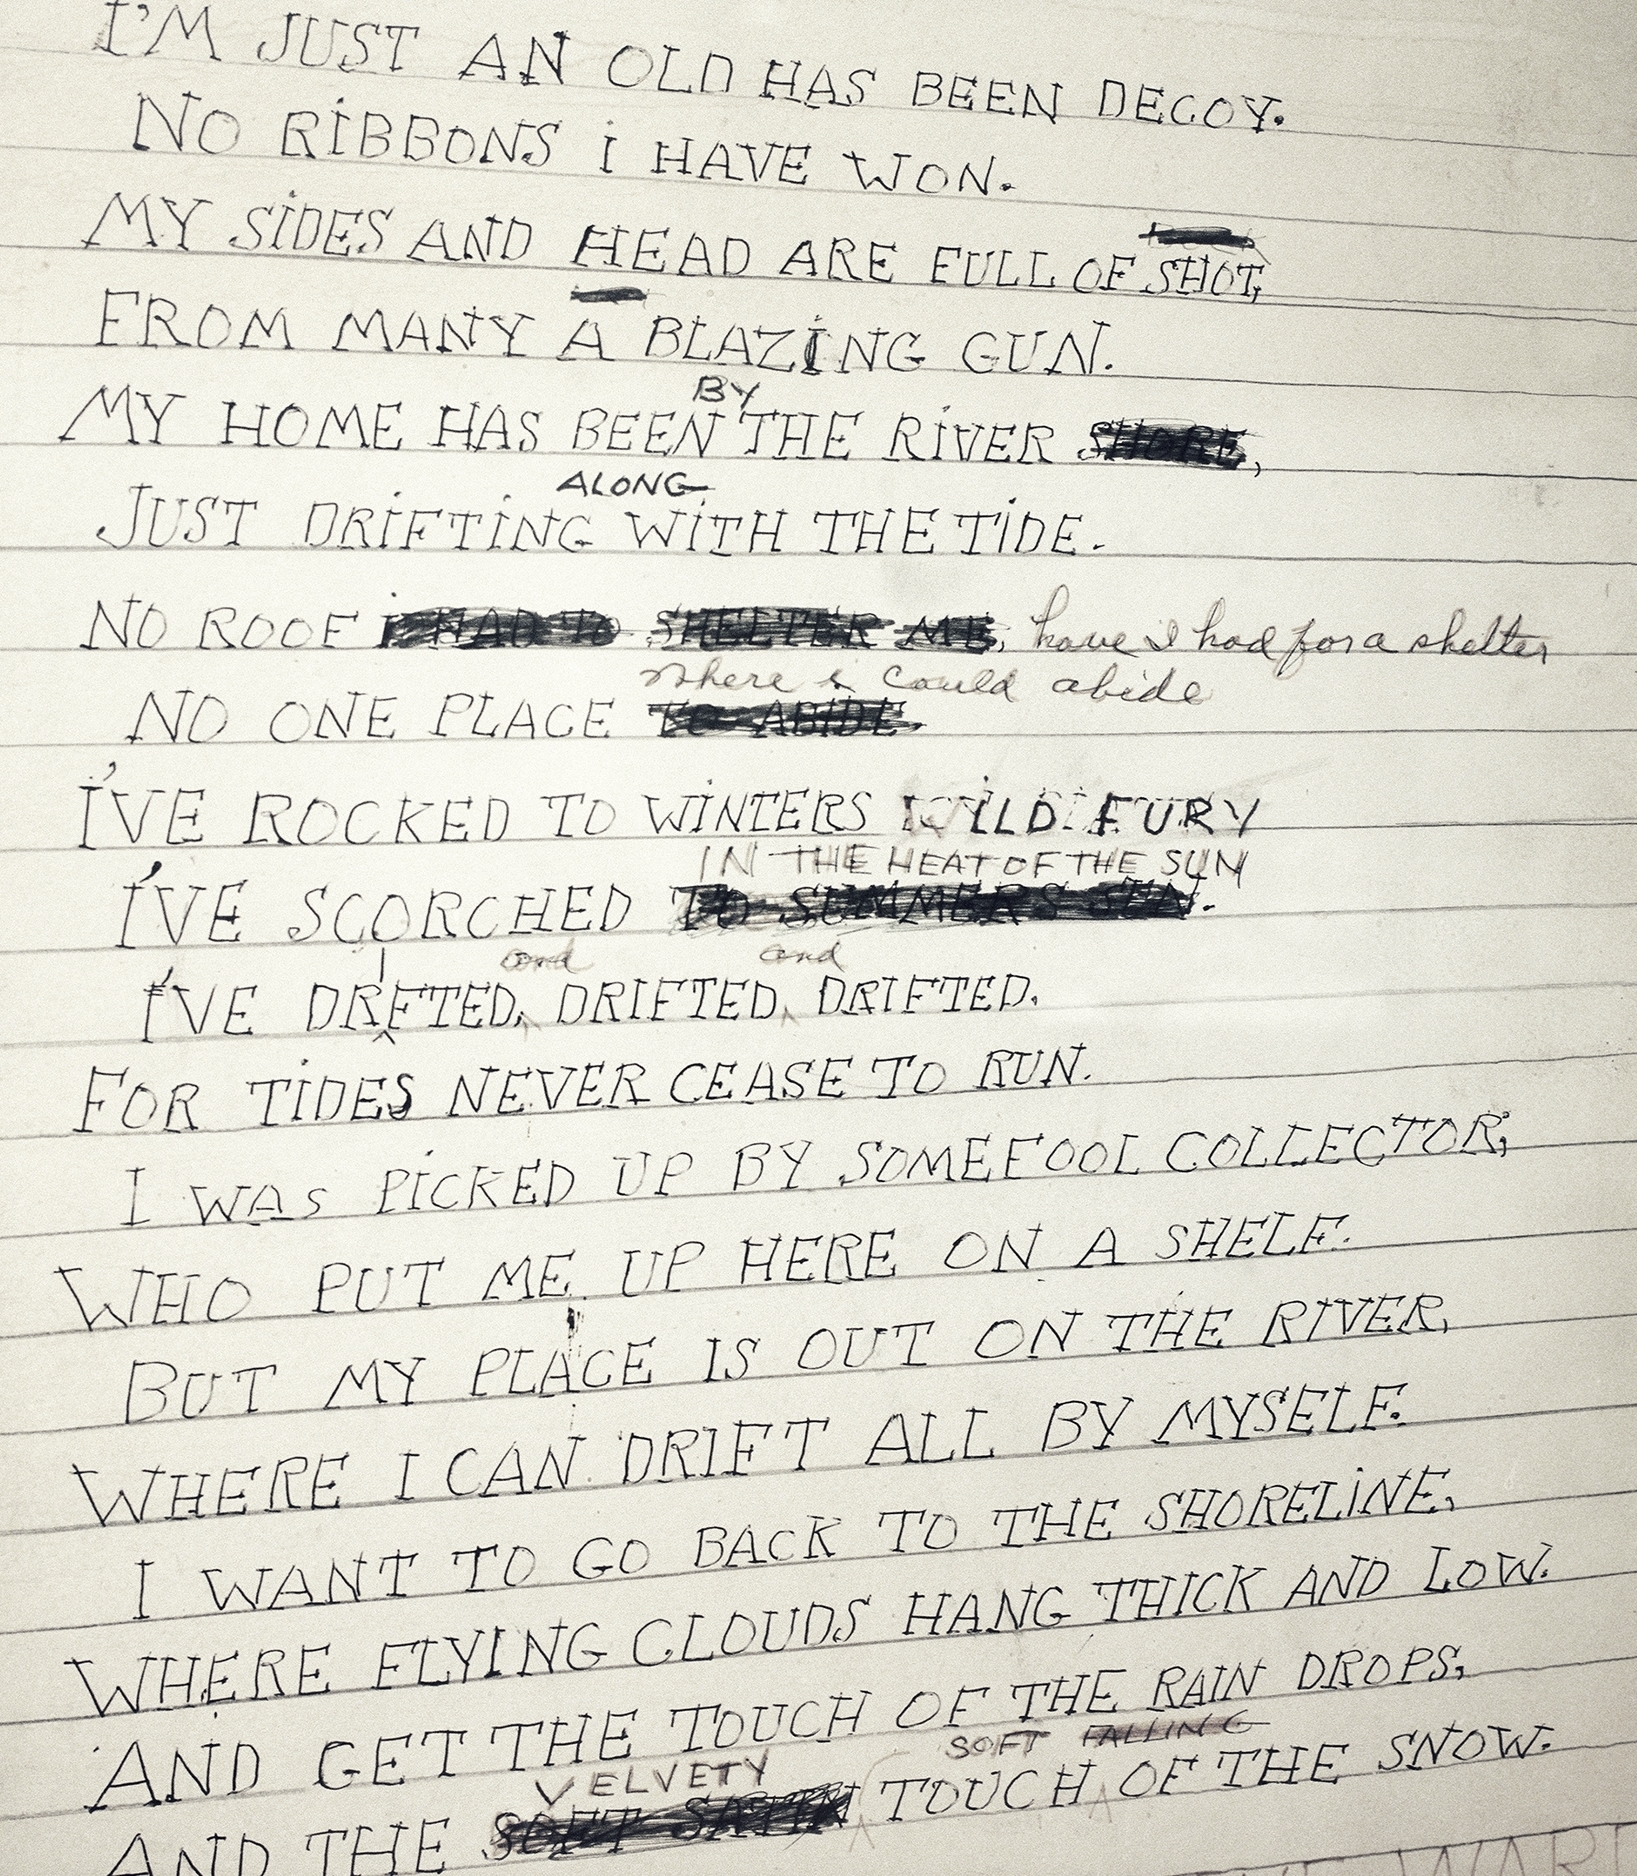 I'M JUST AN OLD HAS BEEN DECOY.
NO RIBBONS I HAVE WON.
MY SIDES AND HEAD ARE FULL OF SHOT,
FROM MANY A BLAZING GUN.
BY
MY HOME HAS BEEN THE RIVER SHORE,
ALONG
JUST DRIFTING WITH THE TIDE.
NO ROOF I HAD TO SHELTER ME, have I had for a shelter
where i could abide
NO ONE PLACE TO ABIDE.
I'VE ROCKED TO WINTERS WILD FURY
IN THE HEAT OF THE SUN
I'VE SCORCHED TO SUMMERS SUN.
and and
I'VE DRIFTED, DRIFTED, DRIFTED.
FOR TIDES NEVER CEASE TO RUN.
I WAS PICKED UP BY SOMEFOOL COLLECTOR,
WHO PUT ME UP HERE ON A SHELF.
BUT MY PLACE IS OUT ON THE RIVER,
WHERE I CAN DRIFT ALL BY MYSELF.
I WANT TO GO BACK TO THE SHORELINE,
WHERE FLYING CLOUDS HANG THICK AND LOW.
AND GET THE TOUCH OF THE RAIN DROPS,
VELVETY SOFT FALLING
AND THE SOFT SATIN TOUCH OF THE SNOW.